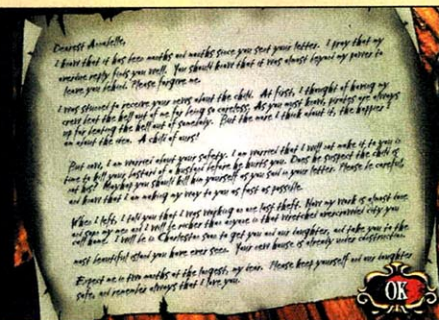 Dearest Annabelle,
I know that it has been months and months since you sent your letter. I pray that my
overdue reply finds you well. You should know that it was almost beyond my power to
leave you behind. Please forgive me.
I was stunned to receive your news about the child. At first, I thought of having my
crew beat the hell out of me for being so careless. As you must know, pirates are always
up for beating the hell out of somebody. But the more I think about it, the happier I
am about the idea. A child of ours!
But now, I am worried about your safety. I am worried that I will not make it to you in
time to kill your bastard of a husband before he hurts you. Does he suspect the child is
not his? Maybe you should kill him yourself as you said in your letter. Please be careful,
and know that I am making my way to you as fast as possible.
When I left, I told you that I was working on one last theft. Now my work is almost done
and soon my men and I will be richer than anyone in that wretched overcrowded city you
call home. I will be in Charleston soon to get you and our daughter, and take you to the
most beautiful island you have ever seen. Your new house is already under construction.
Expect me in two months at the longest, my dear. Please keep yourself and our daughter
safe, and remember always that I love you.
OK